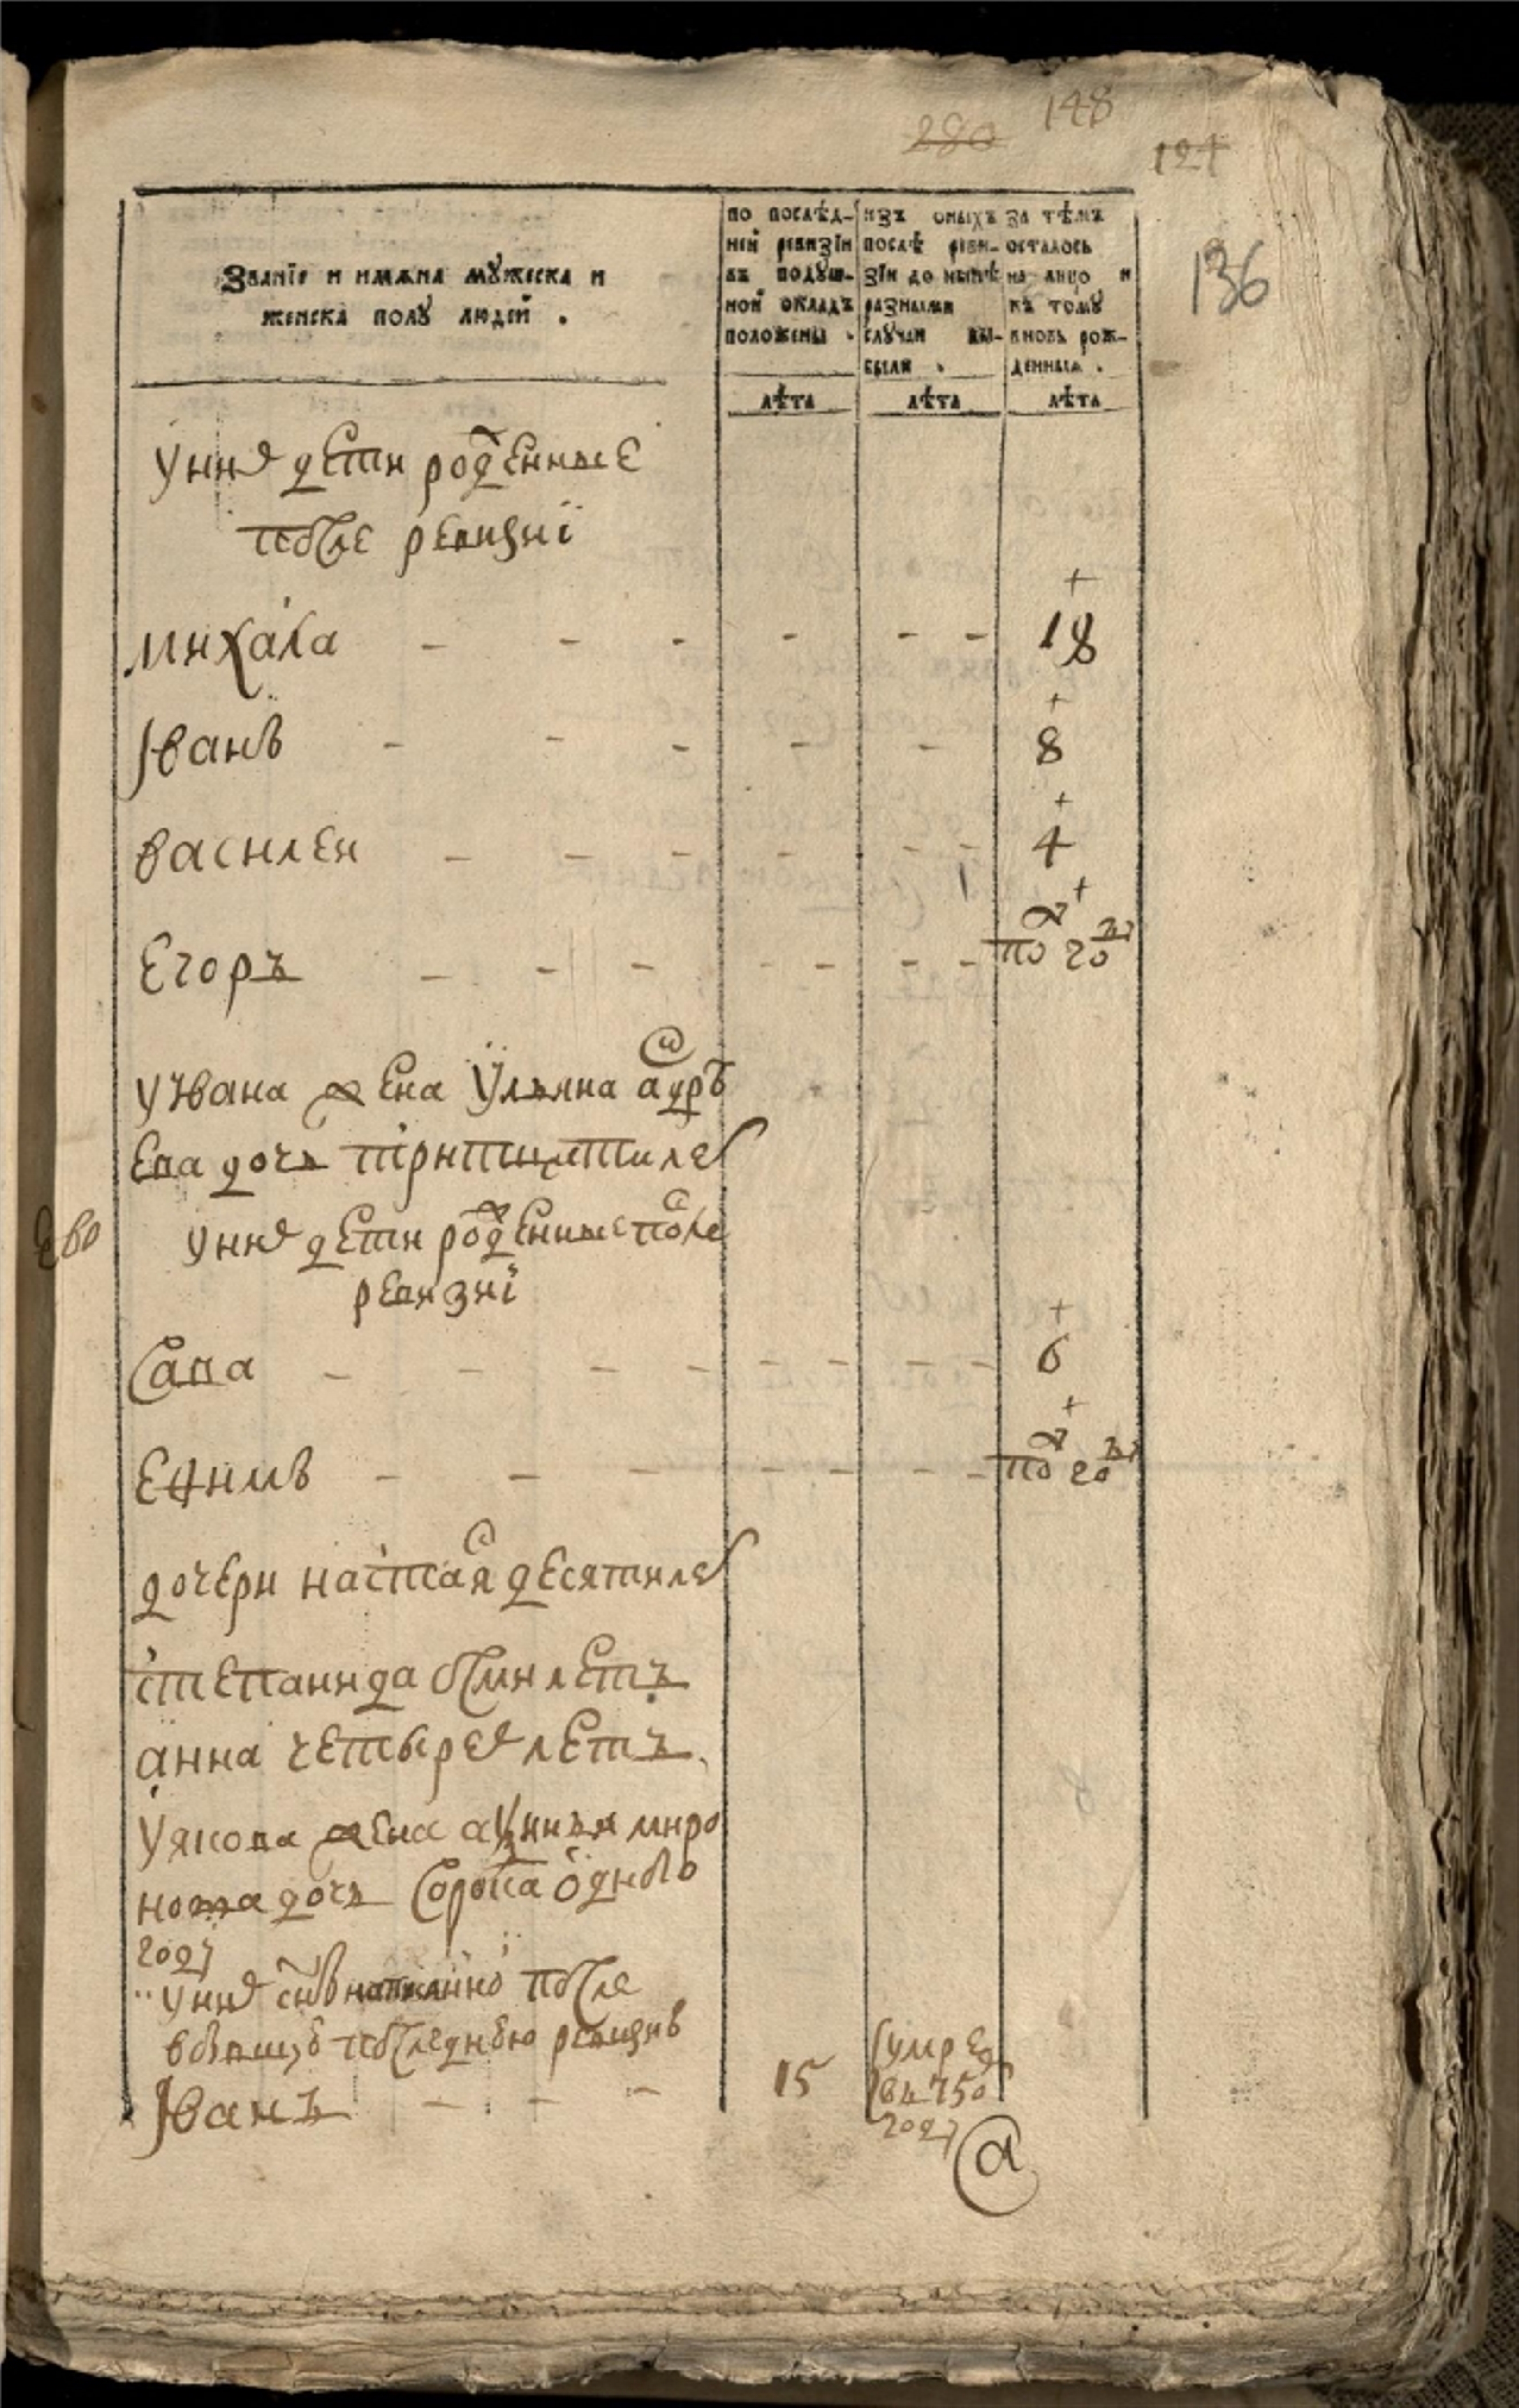 280 148
124
136
Званїе и имѧна мꙋжеска и
женска полꙋ людей .
по послѣд-
ней ревизїи
въ подꙋш-
ной окладъ
положены .
изъ оныхъ
послѣ реви-
зїи до нынѣ
разными
слꙋчаи вы-
были .
за тѣмъ
осталось
на лицо и
къ томꙋ
вновь рож-
денныѧ .
лѣта лѣта лѣта
у них дети рожденные
после ревизиї
михаила - - - - - - 18
Иванъ - - - - - 8
василеи - - - - - - 4
Егоръ - - - - - - - по году
у Ивана жена Ульяна
дочь тритцати лет
у них дети рожденные после
ревизиї
Сава - - - - - - - - 6
Ефимъ - - - - - - - по году
дочери настася десяти лет
степанида осми летъ
анна четырех летъ
У якова жена миро
нова дочь сорока одного
году
у них сынъ после
бывшую последнюю
Иванъ - - - 15 умре
в 750
году